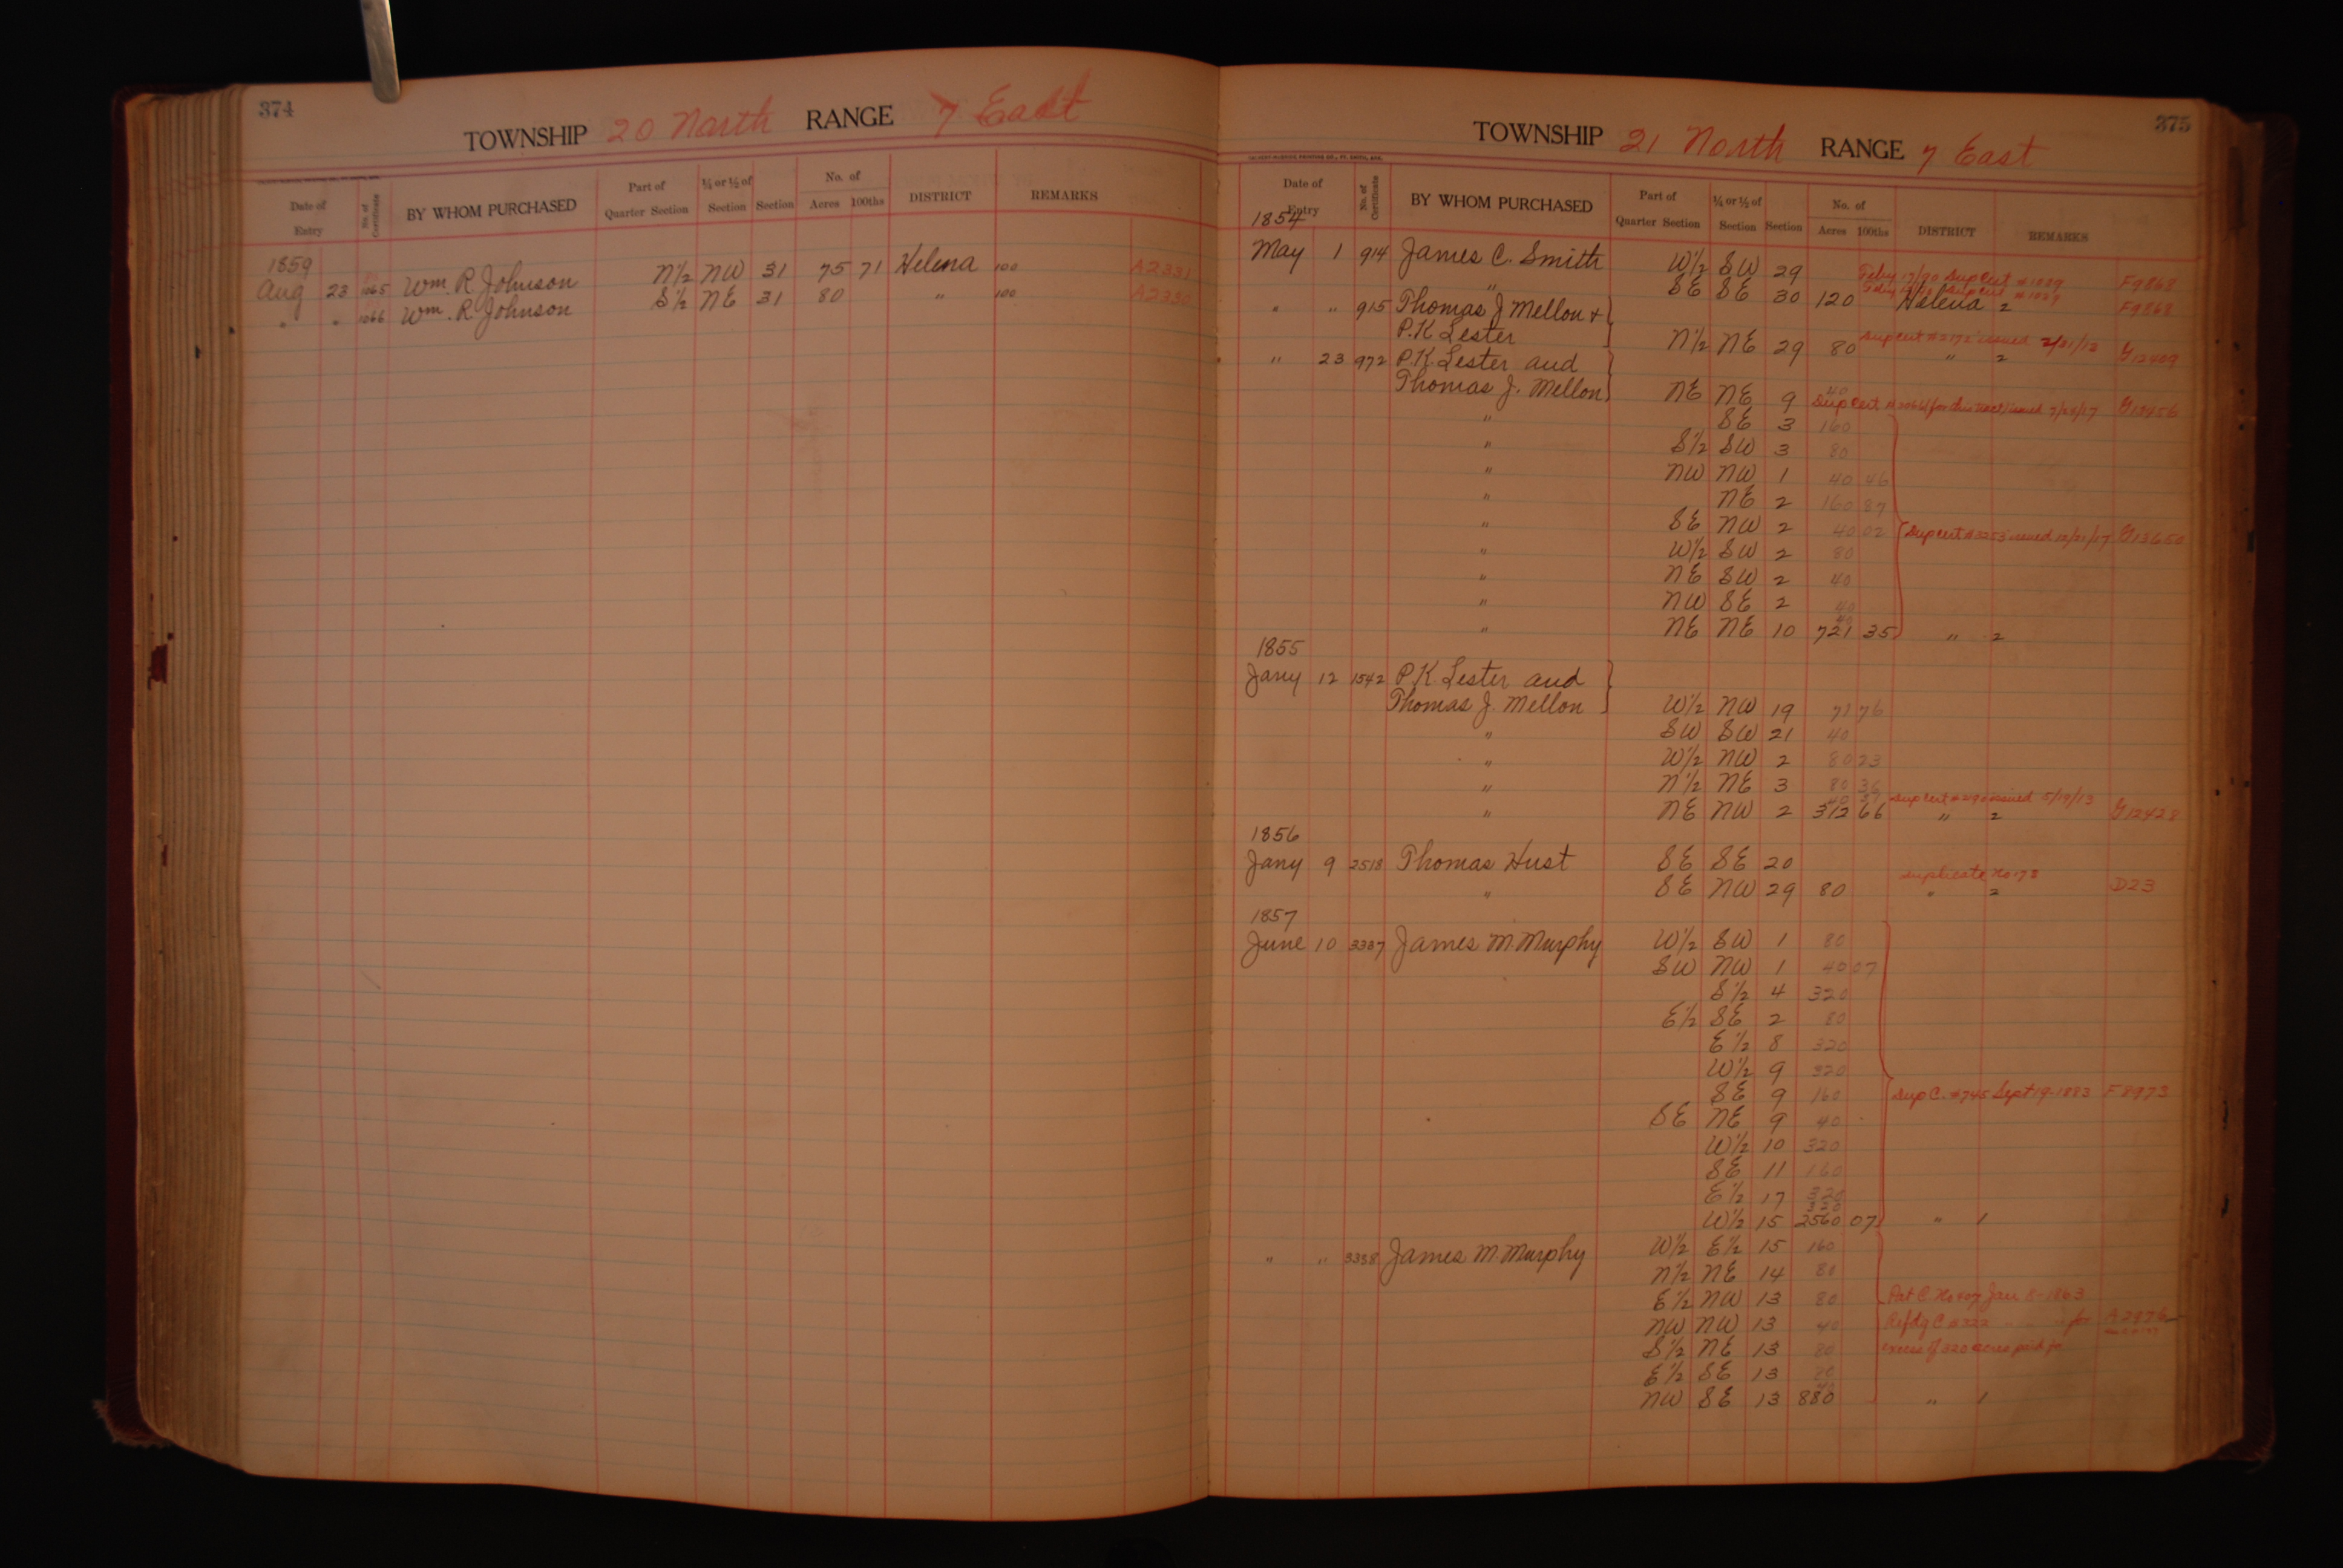 374
TOWNSHIP 20 North RANGE 7 East
Date of Entry No. of Certificate BY WHOM PURCHASED Part of Quarter Section ¼ or ½ of Section Section No. of Acres 100ths DISTRICT REMARKS
1859
Aug 23 1065 Wm. R. Johnson N½ NW 31 75 71 Helena 100 A2331
" " 1066 Wm. R. Johnson S½ NE 31 80 " 100 A2330
375
TOWNSHIP 21 North RANGE 7 East
Date of Entry No. of Certificate BY WHOM PURCHASED Part of Quarter Section ¼ or ½ of Section Section No. of Acres 100ths DISTRICT REMARKS
1854
May 1 914 James C. Smith W½ SW 29 Feby 17/90 Dup Cert #1029 F9868
" SE SE 30 120 Helena 2 F9868
" " 915 Thomas J Mellon &
P.K Lester N½ NE 29 80 Dup cert issued 2/21/12 " 2 G12409
" 23 972 P.K. Lester and
Thomas J. Mellon NE NE 9 40 Dup cert for this tract issued G13456
" SE 3 160
" S½ SW 3 80
" NW NW 1 40 46
" NE 2 160 87
" SE NW 2 40 02 Dup cert #3253 issued 12/21/17 G13650
" W½ SW 2 80
" NE SW 2 40
" NW SE 2 40
" NE NE 10 40 721 35 " 2
1855
Jany 12 1542 P.K. Lester and
Thomas J. Mellon W½ NW 19 71 76
" SW SW 21 40
" W½ NW 2 80 23
" N½ NE 3 80 36
" NE NW 2 312 66 Dup cert issued 5/19/13 " 2 G12428
1856
Jany 9 2518 Thomas Hust SE SE 20
" SE NW 29 80 Duplicate No 173 " 2 D23
1857
June 10 3337 James M. Murphy W½ SW 1 80
SW NW 1 40 07
S½ 4 320
E½ SE 2 80
E½ 8 320
W½ 9 320
SE 9 160 Dup C. #745 Sept 19-1883 F8973
SE NE 9 40
W½ 10 320
SE 11 160
E½ 17 320
W½ 15 320 2560 07 " 1
" " 3338 James M Murphy W½ E½ 15 160
N½ NE 14 80
E½ NW 13 80 Pat C. Jan 8-1863
NW NW 13 40 Refdg C for A2976
S½ NE 13 80 excess of 320 acres paid for
E½ SE 13 80
NW SE 13 40 880 " 1